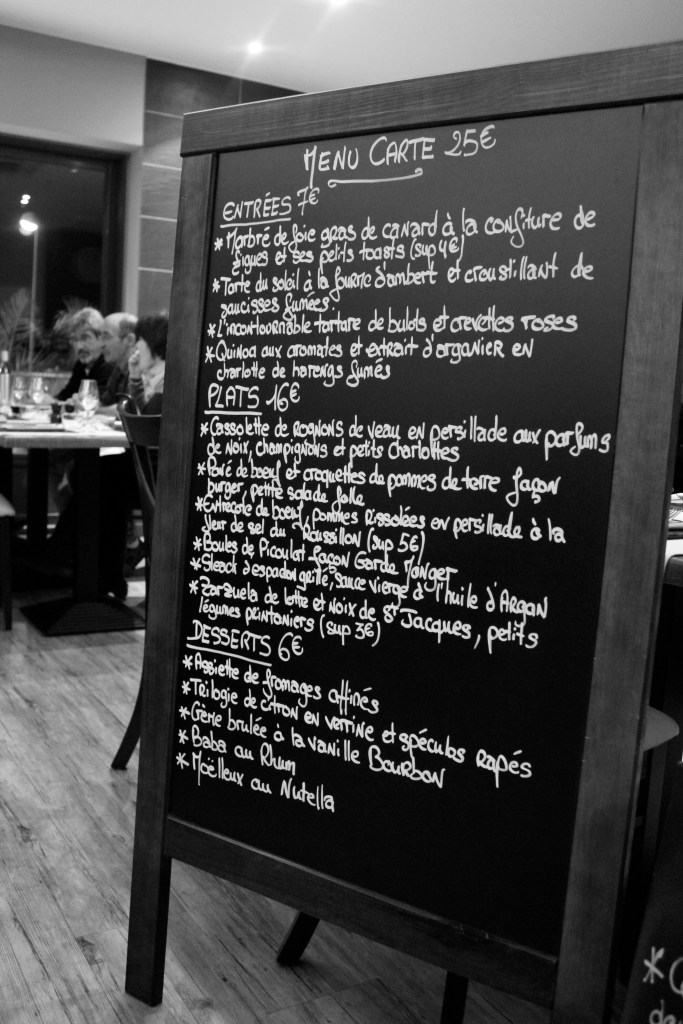 MENU CARTE 25€
ENTRÉES 7€
* Marbré de foie gras de canard à la confiture de
figues et ses petits toasts (sup 4€)
* Tarte du soleil à la fourme d'ambert et croustillant de
saucisses fumées.
* L'incontournable tartare de bulots et crevettes roses
* Quinoa aux aromates et extrait d'arganier en
charlotte de harengs fumés
PLATS 16€
* Cassolette de rognons de veau en persillade aux parfums
de noix, champignons et petits charlottes
* Pavé de boeuf et croquettes de pommes de terre façon
burger, petite salade folle
* Entrecote de boeuf, pommes rissolées en persillade à la
fleur de sel du Roussillon (sup 5€)
* Boules de Picoulat façon Garde Manger
* Steack d'espadon grillé, sauce vierge à l'huile d'Argan
* Zarzuela de lotte et noix de St Jacques, petits
légumes printaniers (sup 3€)
DESSERTS 6€
* Assiette de fromages affinés
* Trilogie de citron en verrine et spéculos rapés
* Crème brulée à la vanille Bourbon
* Baba au Rhum
* Moëlleux au Nutella
*